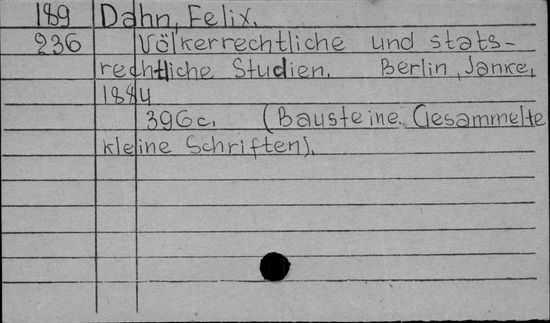 189 Dahn, Felix.
236 Völkerrechtliche und stats-
rechtliche Studien. Berlin, Janke,
1884
396c. (Bausteine. Gesammelte
kleine Schriften).